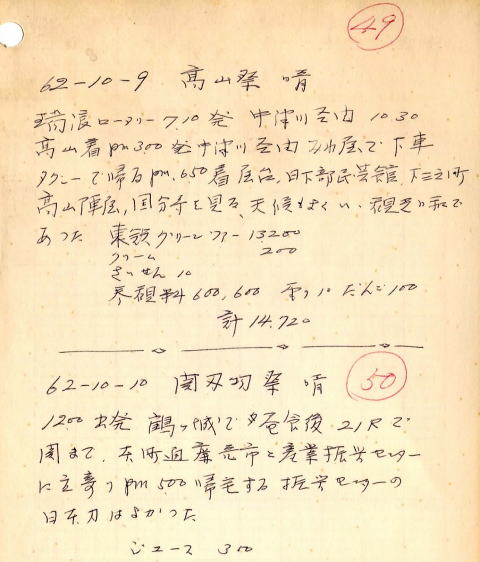 49
62-10-9 高山祭 晴
瑞浪ロータリー 7.10発 中津川経由 10 30
高山着 pm 300 発 中津川経由 で下車
タクシーで帰る pm, 650着 屋台, 日下部民芸館, 下三之町
高山陣屋, 国分寺を見る, 天候もよくいい観光日和で
あった 東鉄グリーンツアー 13200
クリーム 200
さいせん 10
参観料 600, 600 10 だんご 100
計 14.720
62-10-10 関刃物祭 晴 50
1200 出発 鶴ヶ城で昼食後 21Rで
関まで. 本町通廉売市と産業振興センター
に立寄り pm 500 帰宅する 振興センターの
日本刀はよかった
ジュース 300